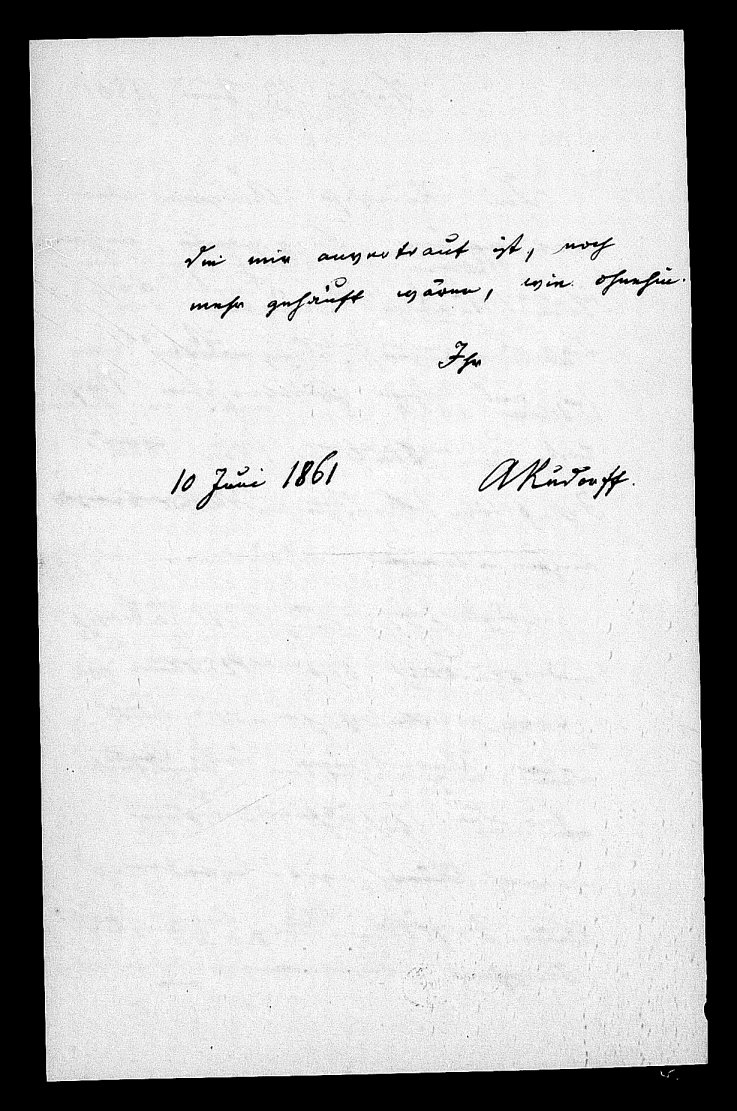 die mir anvertraut ist, noch
mehr gehäuft wären, wie ohnehin.
Ihr
10 Juni 1861 ARudorff.